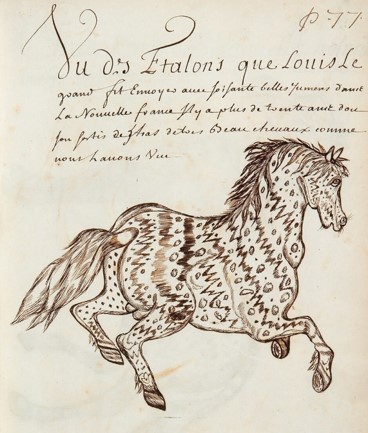 P. 77.
Vn des Etalons que Louis Le
grand fit Envoyer avec soisante belles jumens dans
La Nouvelle france il y a plus de trente ans dou
son sortis de haras de tres beau cheuaux comme
nous Lauons Vue